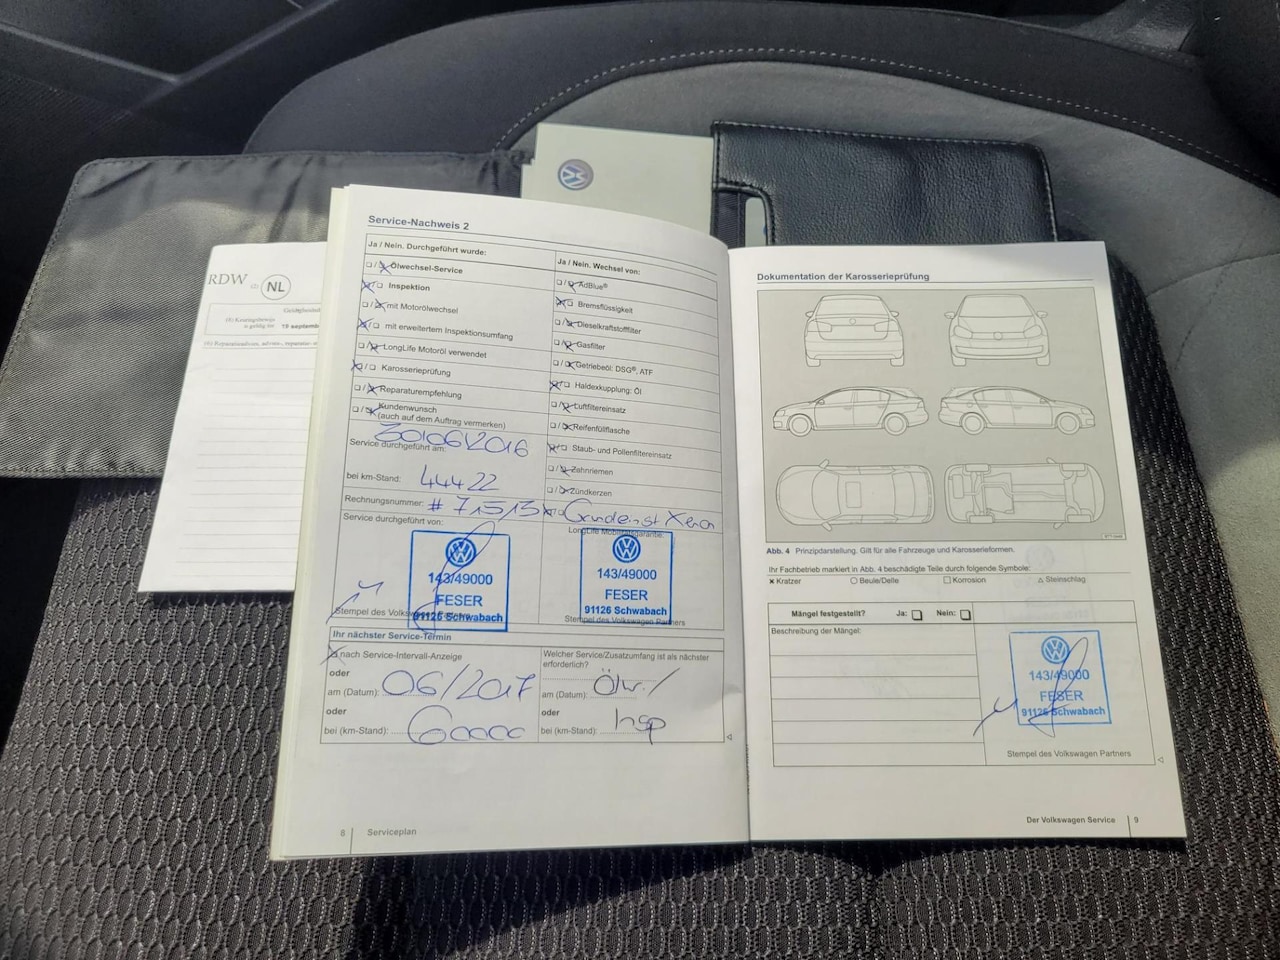 RDW
NL
Service-Nachweis 2
Ja / Nein. Durchgeführt wurde:
Ölwechsel-Service
Inspektion
mit Motorölwechsel
mit erweitertem Inspektionsumfang
LongLife Motoröl verwendet
Karosserieprüfung
Reparaturempfehlung
Kundenwunsch
(auch auf dem Auftrag vermerken)
Ja / Nein. Wechsel von:
AdBlue®
Bremsflüssigkeit
Dieselkraftstofffilter
Gasfilter
Getriebeöl: DSG®, ATF
Haldexkupplung: Öl
Luftfiltereinsatz
Reifenfüllflasche
Staub- und Pollenfiltereinsatz
Zahnriemen
Zündkerzen
Service durchgeführt am: 30/06/2016
bei km-Stand: 44422
Rechnungsnummer: # 71515
Service durchgeführt von:
LongLife Mobilitätsgarantie:
143/49000
FESER
91126 Schwabach
Stempel des Volkswagen Partners
143/49000
FESER
91126 Schwabach
Stempel des Volkswagen Partners
Ihr nächster Service-Termin
nach Service-Intervall-Anzeige
oder
am (Datum): 06/2017
oder
bei (km-Stand): 60000
Welcher Service/Zusatzumfang ist als nächster
erforderlich?
am (Datum): Ölw./
oder
bei (km-Stand): Insp
8 Serviceplan
Dokumentation der Karosserieprüfung
Abb. 4 Prinzipdarstellung. Gilt für alle Fahrzeuge und Karosserieformen.
Ihr Fachbetrieb markiert in Abb. 4 beschädigte Teile durch folgende Symbole:
Kratzer Beule/Delle Korrosion Steinschlag
Mängel festgestellt? Ja: Nein:
Beschreibung der Mängel:
143/49000
FESER
91126 Schwabach
Stempel des Volkswagen Partners
Der Volkswagen Service 9